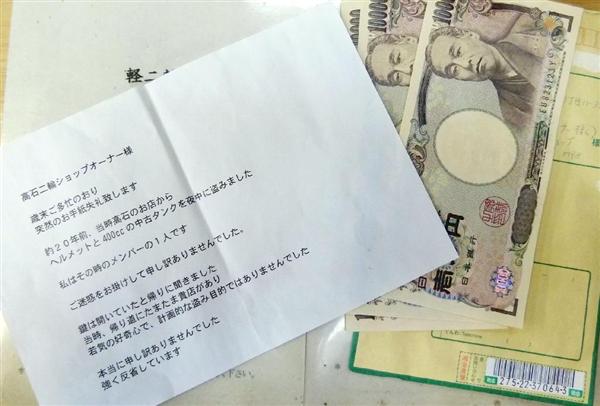 軽二
高石二輪ショップオーナー様
歳末ご多忙のおり
突然のお手紙失礼致します
約20年前、当時高石のお店から
ヘルメットと400ccの中古タンクを夜中に盗みました
私はその時のメンバーの1人です
ご迷惑をお掛けして申し訳ありませんでした。
鍵は開いていたと帰りに聞きました
当時、帰り道にたまたま貴店があり
若気の好奇心で、計画的な盗み目的ではありませんでした
本当に申し訳ありませんでした
強く反省しています
ださい。
10000
10000
EB823123Y
壱万円
日本銀行
様
275-22-37064-3